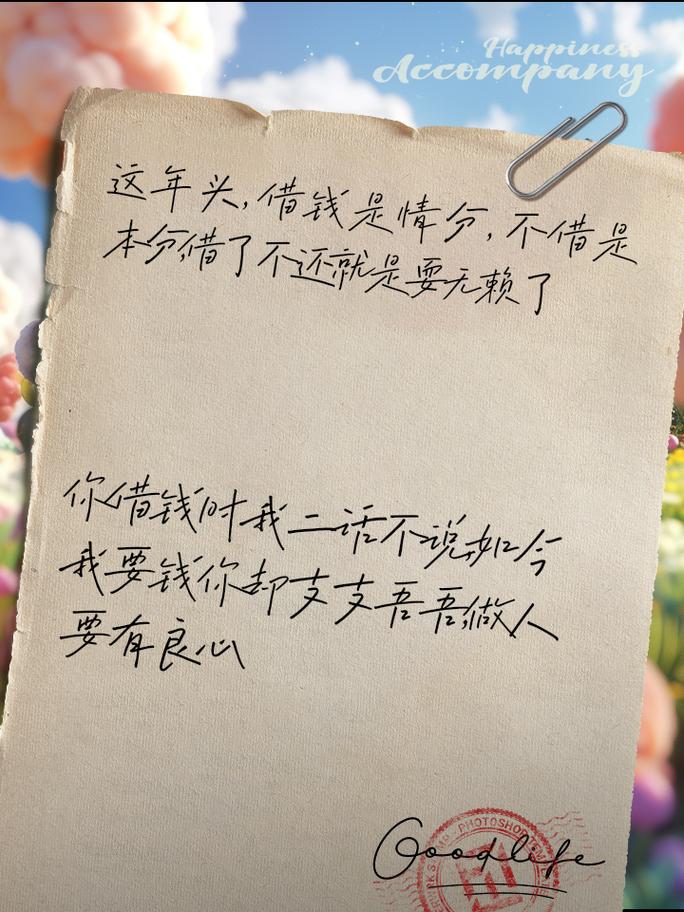 Happiness
Accompany
这年头,借钱是情分,不借是
本分,借了不还就是耍无赖了
你借钱时我二话不说,如今
我要钱你却支支吾吾,做人
要有良心
PHOTOSHOP
Goodlife